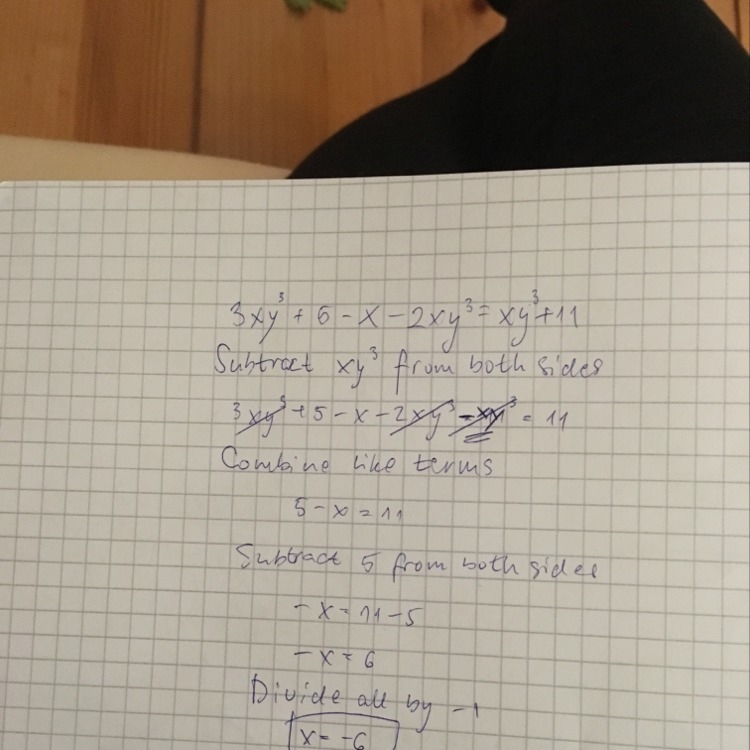 3xy³ + 5 - x - 2xy³ = xy³ + 11
Subtract xy³ from both sides
3xy³ + 5 - x - 2xy³ - xy³ = 11
Combine like terms
5 - x = 11
Subtract 5 from both sides
- x = 11 - 5
- x = 6
Divide all by -1
x = -6